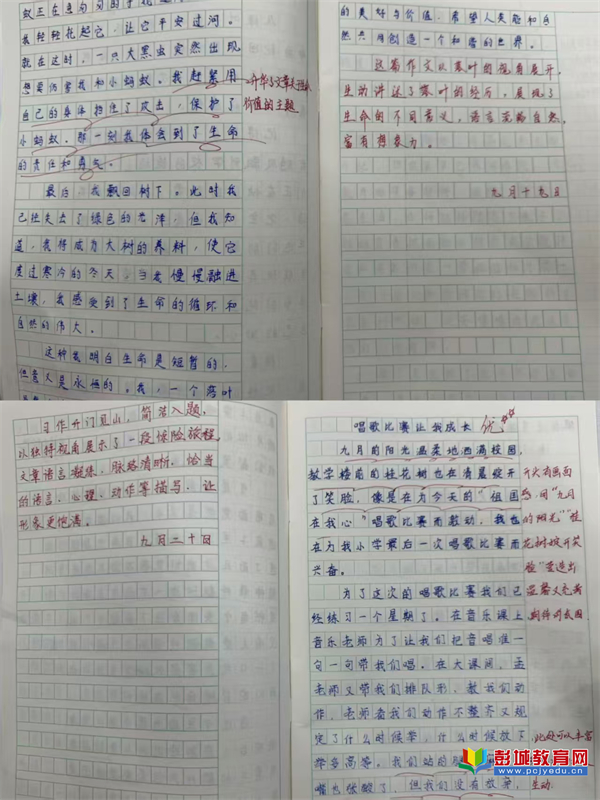 蚁正在急匆匆的
我轻轻托起它，让它平安过河。
就在这时，一只大黑虫突然出现
想要伤害我和小蚂蚁。我赶紧用
自己的身体挡住了攻击，保护了
小蚂蚁。那一刻我体会到了生命
的责任和勇气。
价值的主题
最后，我飘回树下。此时我
已经失去了绿色的光泽，但我知
道，我将成为大树的养料，使它
度过寒冷的冬天。当我慢慢融进
土壤，我感受到了生命的循环和
自然的伟大。
这种我明白生命是短暂的，
但意义是永恒的。我，一个落叶
的美好与价值，希望人类能和自
然共同创造一个和谐的世界。
这篇作文以落叶的视角展开，
生动讲述了落叶的经历，展现了
生命的不同意义，语言流畅自然，
富有想象力。
九月十九日
习作开门见山，简洁入题，
以独特视角展示了一段惊险旅程
文章语言凝练，脉络清晰，恰当
的语言、心理、动作等描写，让
形象更饱满。
九月二十日
唱歌比赛让我成长 优
九月的阳光温柔地洒满校园，
教学楼前的桂花树也在清晨绽开
了笑脸，像是在为今天的“祖国
在我心”唱歌比赛而鼓动，我也
在为我小学最后一次唱歌比赛而
兴奋。
开头有画面
感，用“九月
的阳光”“桂
花树绽开笑
脸”营造出
温馨又充满
期待的氛围
为了这次的唱歌比赛我们已
经练习一个星期了。在音乐课上
音乐老师为了让我们把音唱准一
句一句带我们唱。在大课间，孟
老师又带我们排队形，教我们动
作，老师看我们动作不整齐又规
定了什么时候举，什么时候放下
举多高等。我们站的
嘴也张酸了，但我们没有放弃，
此处可以丰富
生动
彭城教育网
www.pcjyedu.cn